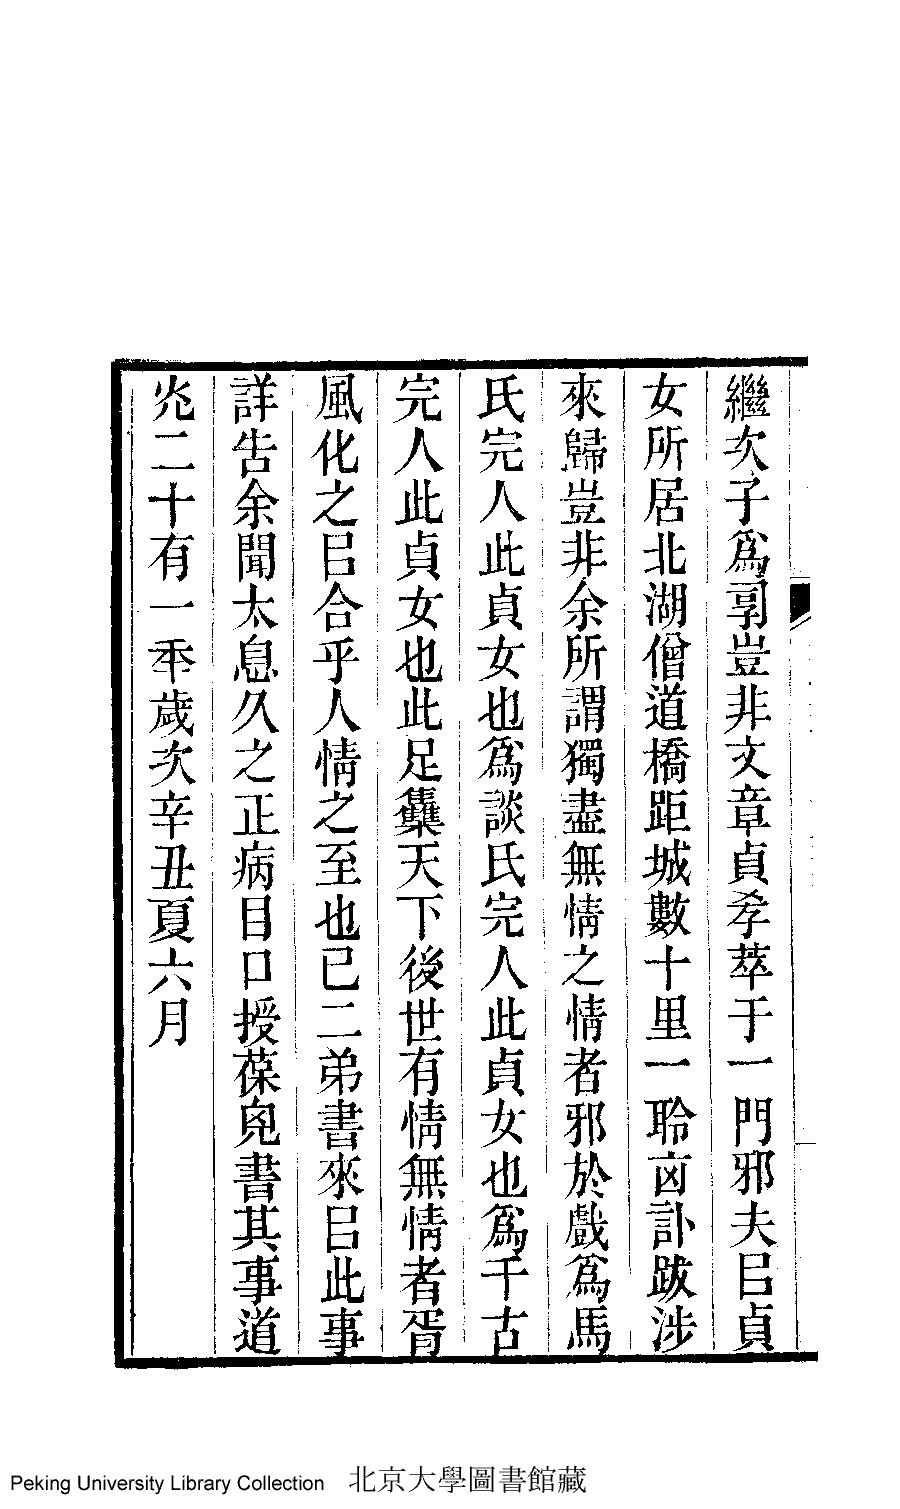 繼次子爲𠅘豈非文章貞孝萃于一門邪夫㠯貞
女所居北湖僧道橋距城數十里一聆凶訃跋涉
來歸豈非余所謂獨盡無情之情者邪於戲爲馬
氏完人此貞女也爲談氏完人此貞女也爲千古
完人此貞女也此足櫫天下後世有情無情者胥
風化之㠯合乎人情之至也已二弟書來㠯此事
詳告余聞太息久之正病目口授葆兒書其事道
光二十有一秊歲次辛丑夏六月
Peking University Library Collection 北京大學圖書館藏